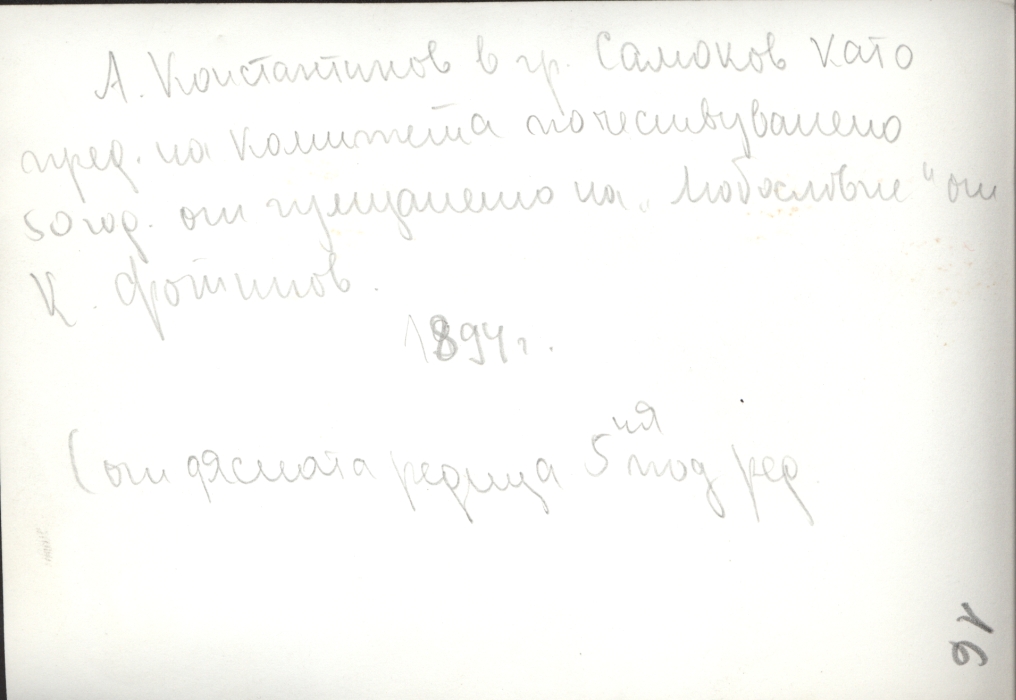 А. Константинов в гр. Самоков като
пред. на комитета почествуването
50 год. от пущането на „Любословие" от
К. Фотинов.
1894 г.
(от дясната редица 5ия под ред